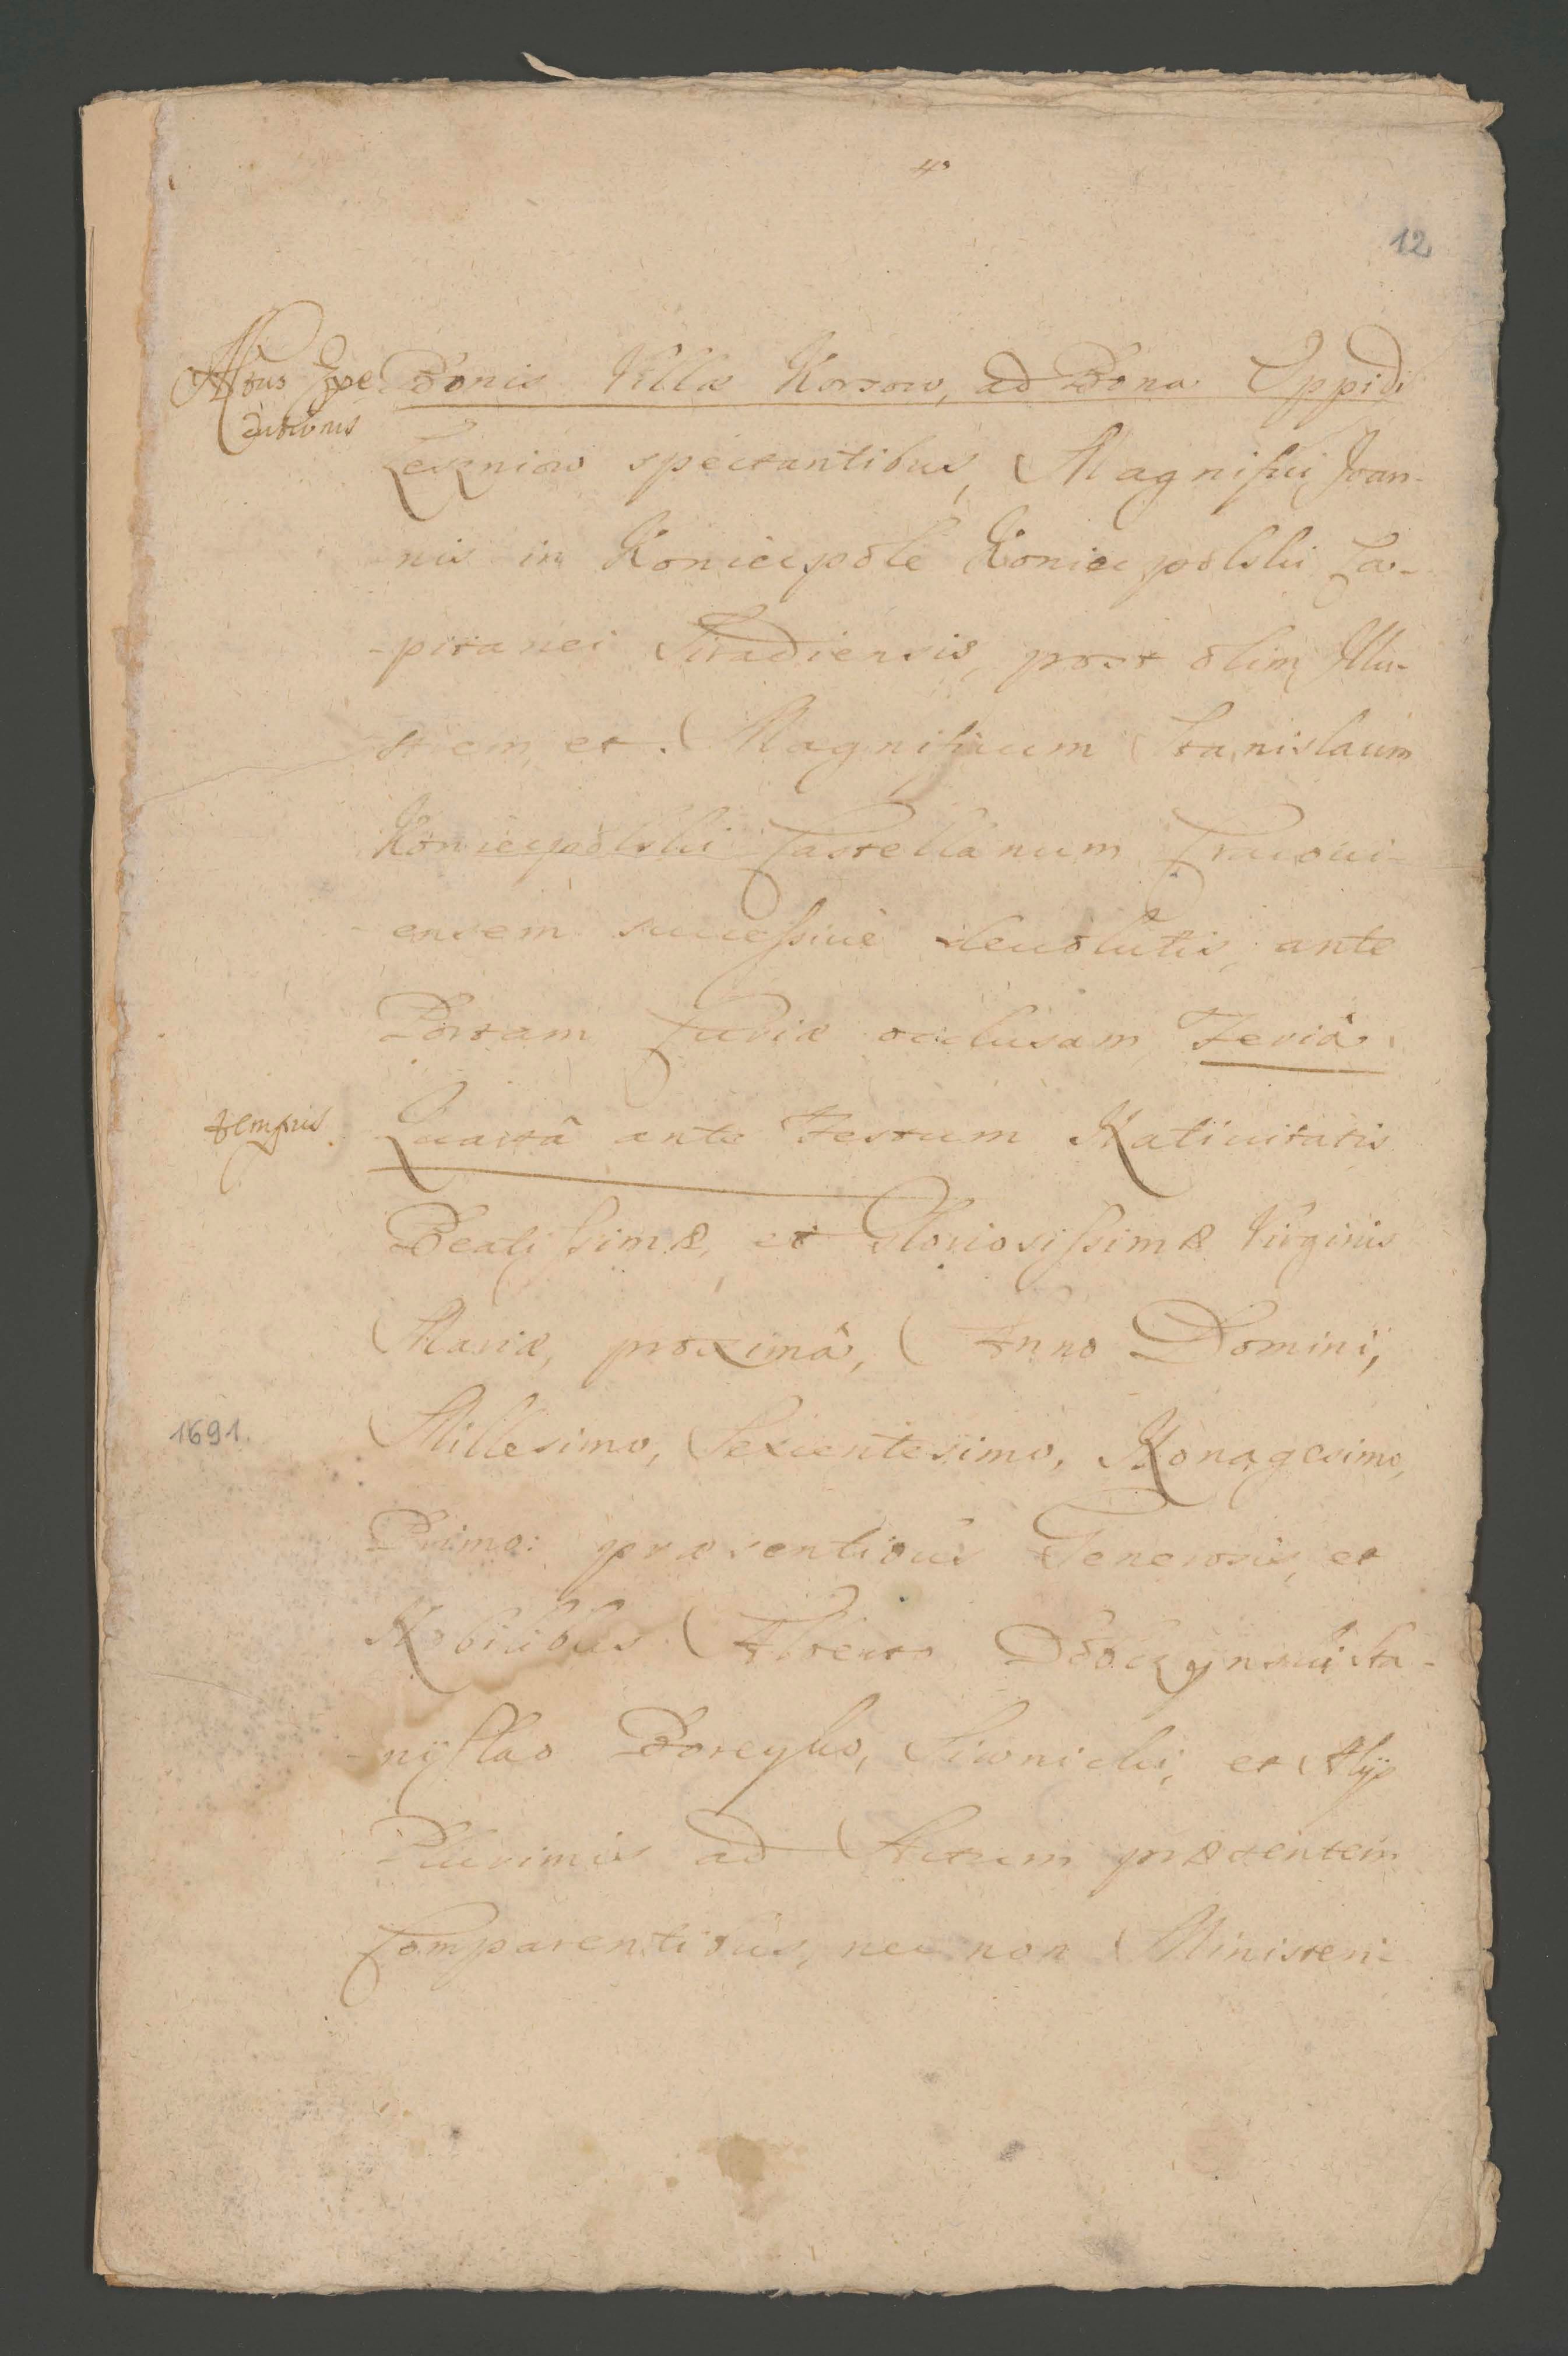 4
12
Actus Expe
ditionis
Bonis Villæ Korsow, ad Bona Oppidi
Leszniow spectantibus, Magnifici Joan-
nis in Koniecpole Koniecpolski Ca-
-pitanei Siradiensis, post olim Illu-
strem et Magnificum Stanislaum
Koniecpolski Castellanum Cracovi-
ensem successiuè deuolutis, ante
Portam Curiæ occlusam, Feriâ
tempus
Quartâ ante Festum Natiuitatis
Beatissimæ, et Gloriosissimæ Virginis
Mariæ, proximâ, Anno Domini,
1691.
Millesimo, Sexcentesimo, Nonagesimo,
Primo: præsentibus Generosis, et
Nobilibus Alberto Sta-
-nyslao Siwnicki, et Alÿs
Plurimis ad Actum præsentem
Comparentibus, nec non Ministeri-